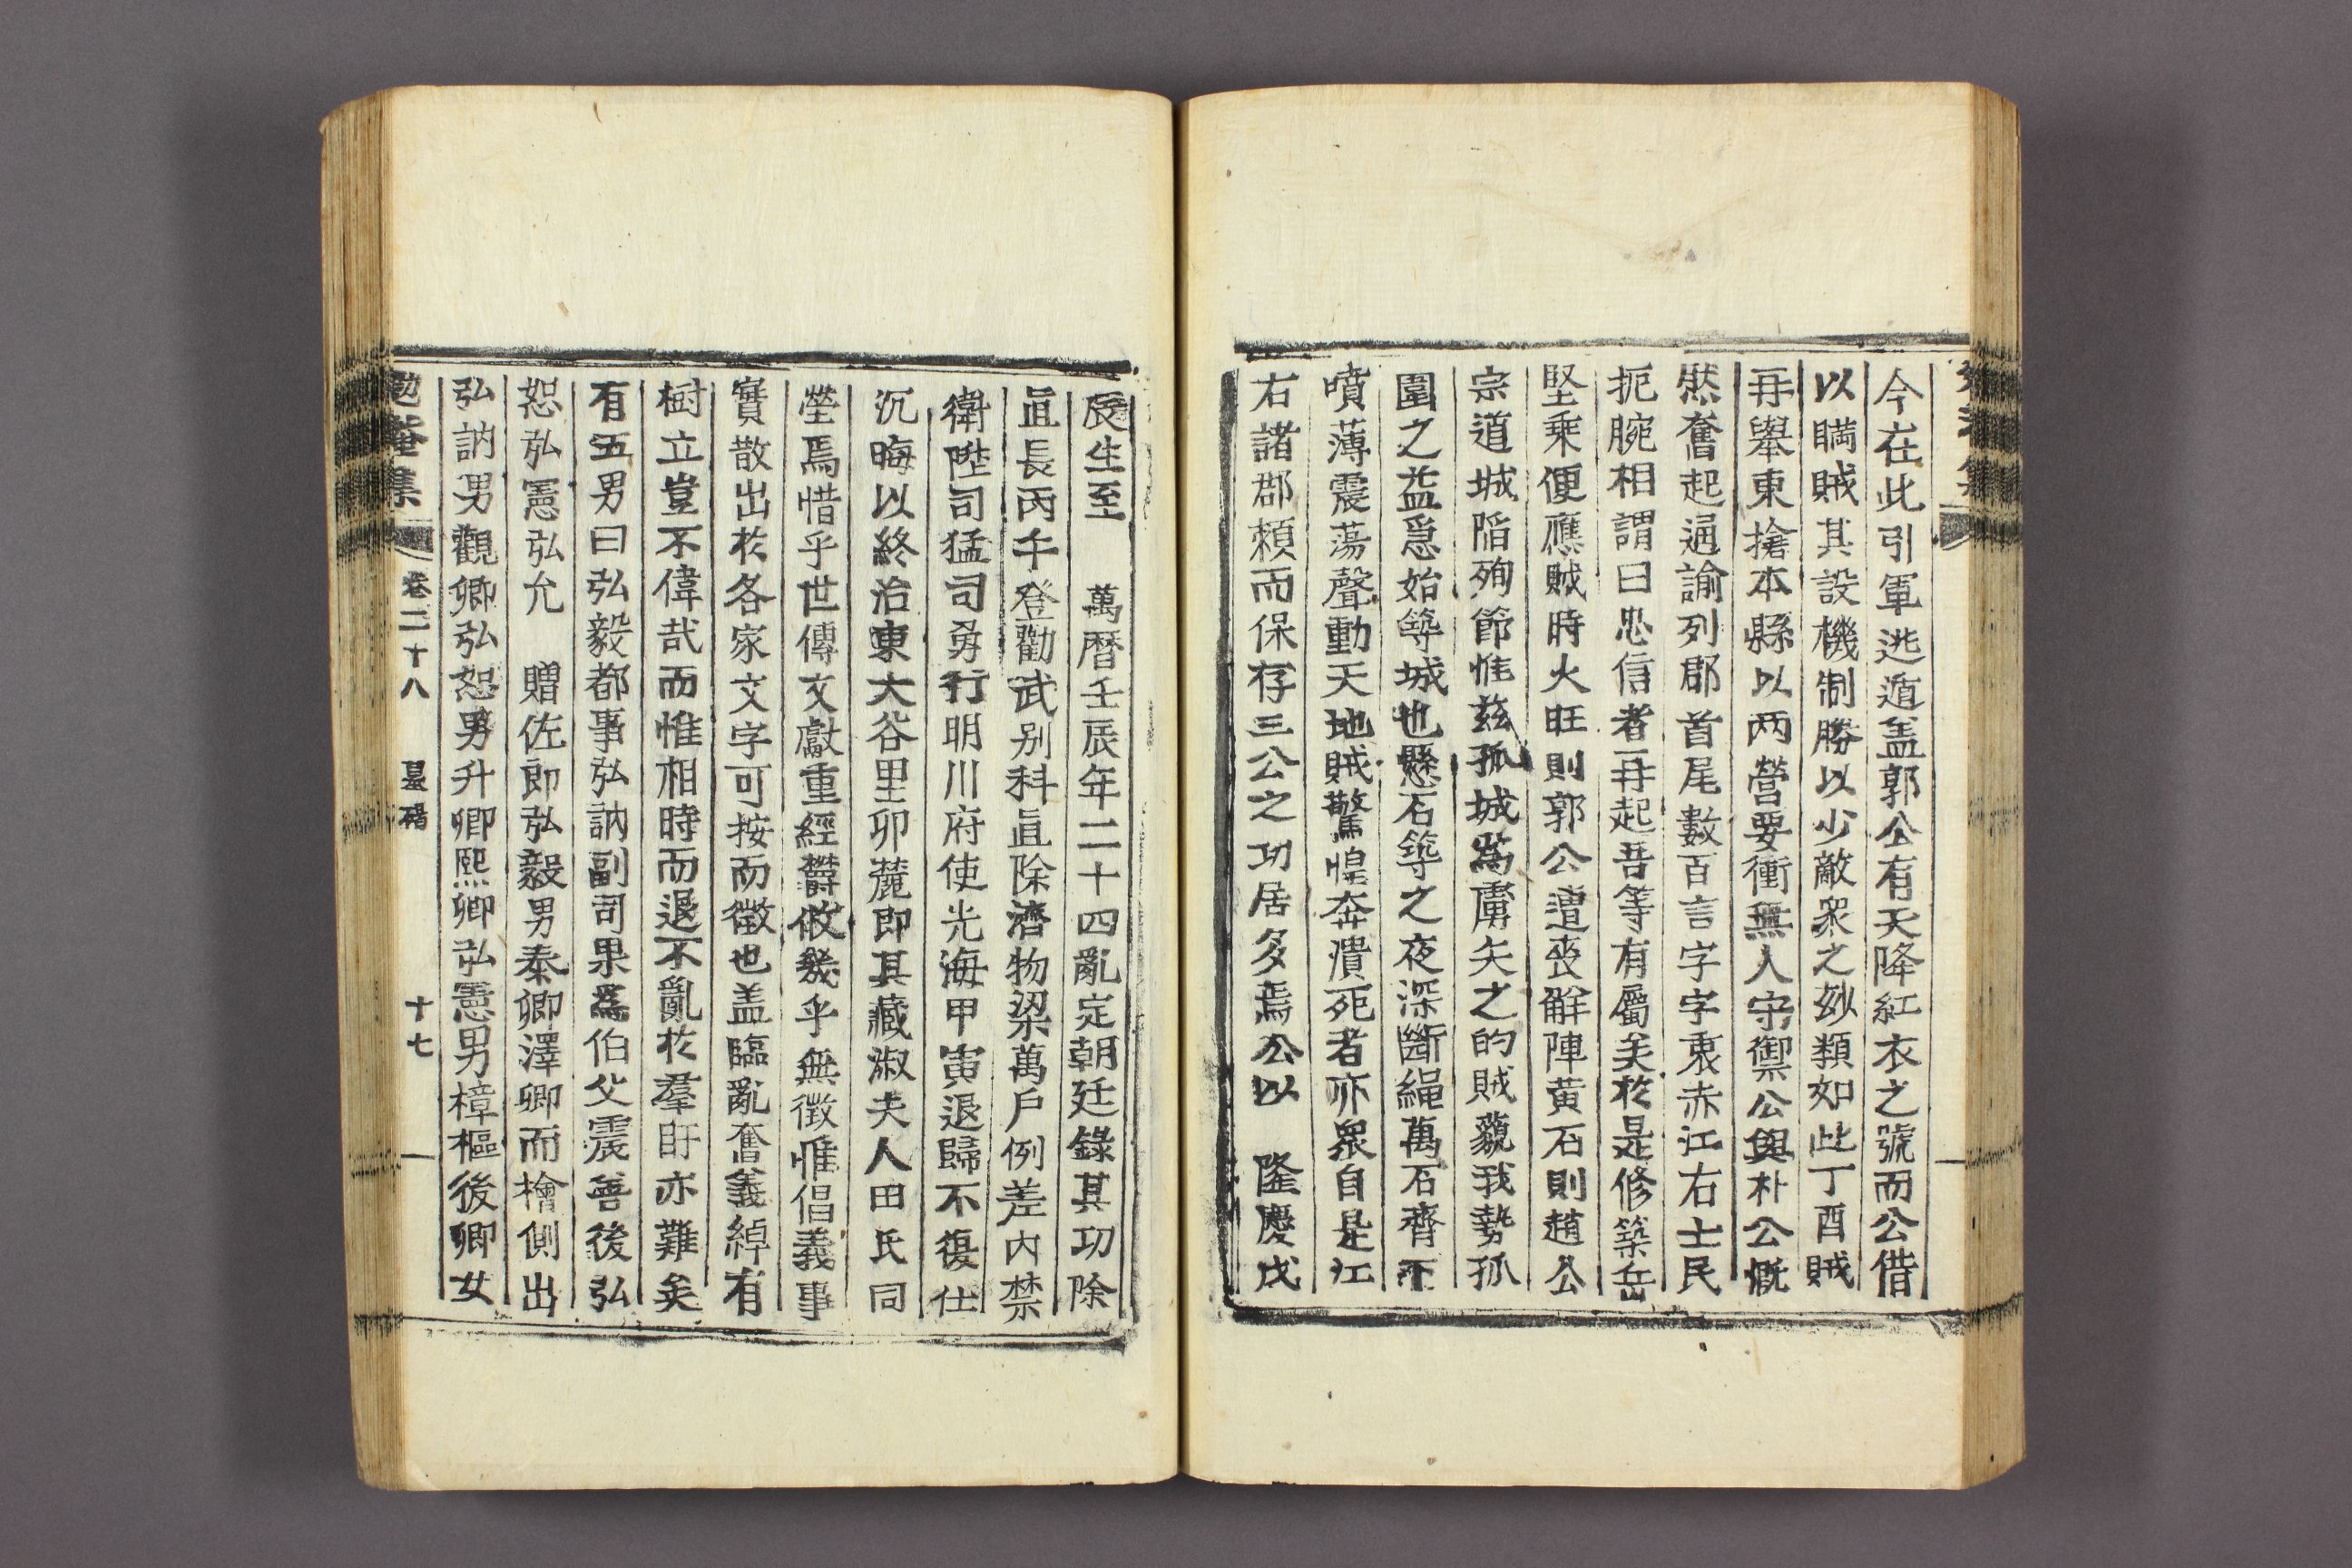 今在此引軍逃遁盖郭公有天降紅衣之號而公借
以瞞賊其設機制勝以少敵衆之玅類如此丁酉賊
再擧東搶本縣以两營要衝無人守禦公與朴公慨
然奮起通諭列郡首尾數百言字字衷赤江右士民
扼腕相謂曰忠信者再起吾等有屬矣於是修築岳
堅乘便應賊時火旺則郭公遭喪觧陣黄石則趙公
宗道城陷殉節惟玆孤城爲虜矢之的賊藐我勢孤
圍之益急始築城也懸石築之夜深斷繩萬石齊下
噴薄震蕩聲動天地賊驚惶奔潰死者亦衆自是江
右諸郡頼而保存三公之功居多焉公以 隆慶戊
辰生至 萬曆壬辰年二十四亂定朝廷錄其功除
直長丙午登勸武别科直除濟物梁萬戶例差内禁
衛陞司猛司勇行明川府使光海甲寅退歸不復仕
沉晦以終治東大谷里卯麓即其藏淑夫人田氏同
塋焉惜乎世傳文獻重經欝攸幾乎無徵惟倡義事
實散出於各家文字可按而徵也盖臨亂奮義綽有
樹立豈不偉哉而惟相時而退不亂於羣盱亦難矣
有五男曰弘毅都事弘訥副司果爲伯父震善後弘
恕弘憲弘允 贈佐郞弘毅男泰卿澤卿而檜側出
弘訥男觀卿弘恕男升卿熙卿弘憲男樟樞後卿女
勉菴集 卷二十八 墓碣 十七